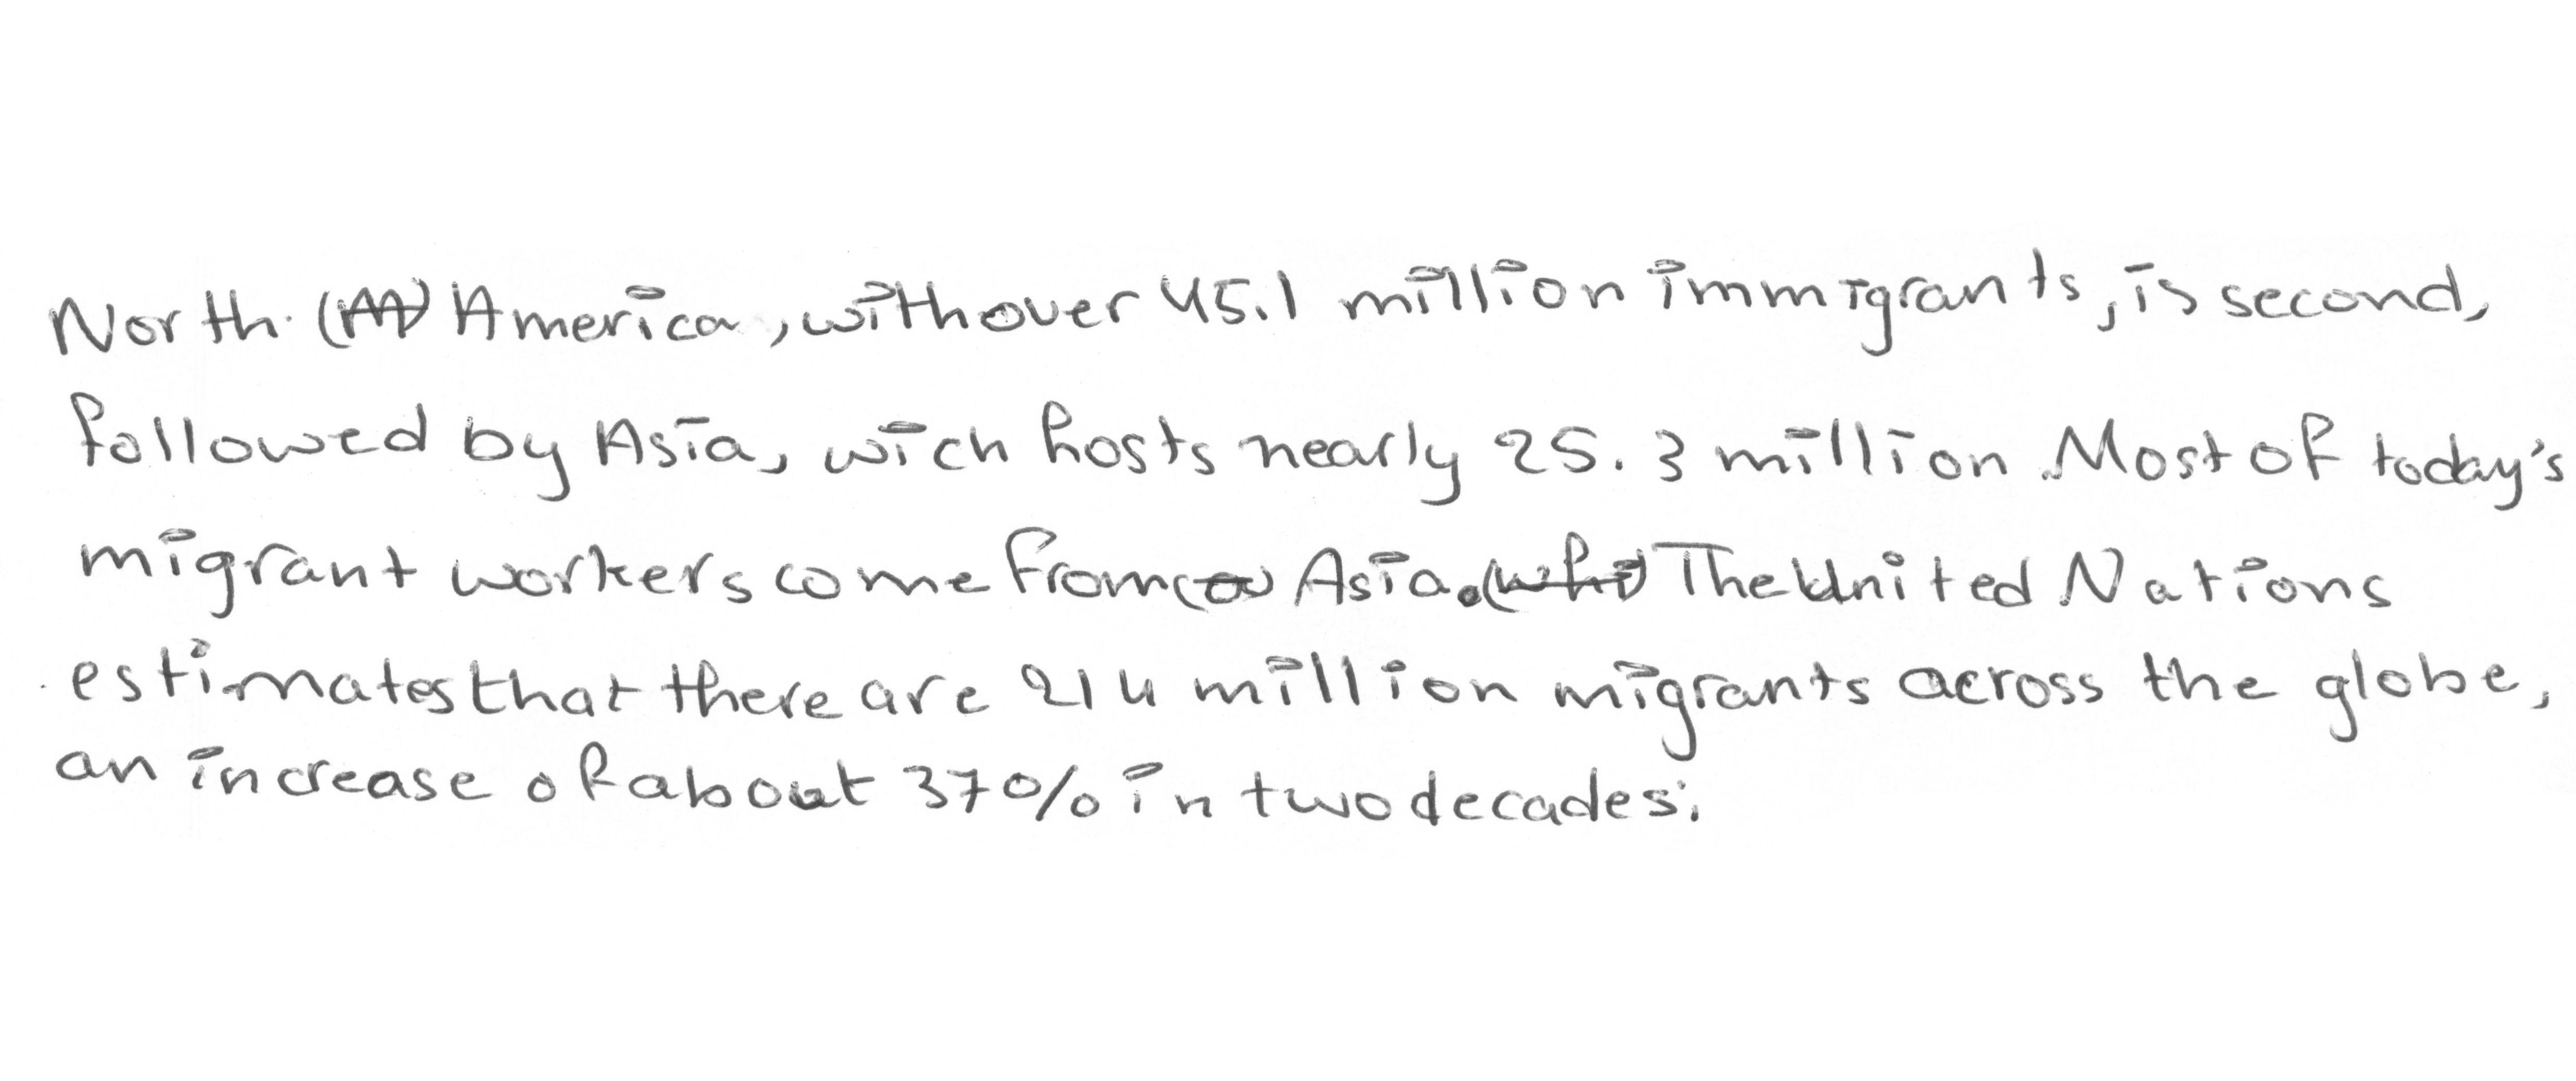 North America, with over 45.1 million immigrants, is second,
followed by Asia, wich hosts nearly 25.3 million. Most of today's
migrant workers come from Asia. The United Nations
estimates that there are 214 million migrants across the globe,
an increase of about 37% in two decades.